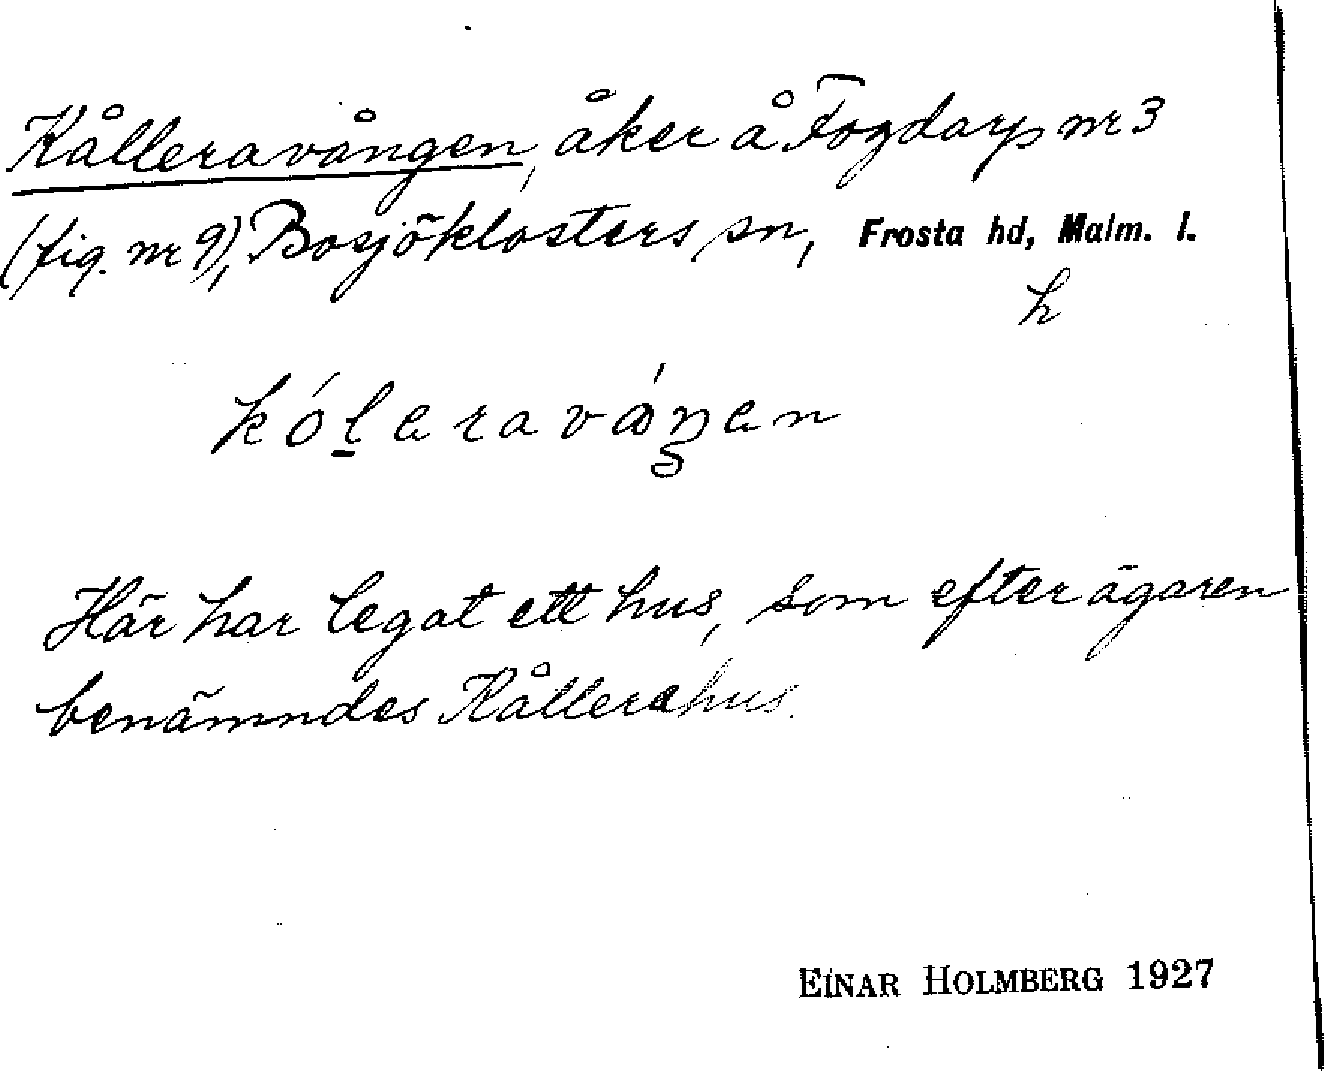 Kålleravången, åker å Fogdarp nr 3
(fig. nr 9), Bosjöklosters sn, Frosta hd, Malm. l.
h
Här har legat ett hus, som efter ägaren
benämndes Kållerahus.
EINAR HOLMBERG 1927